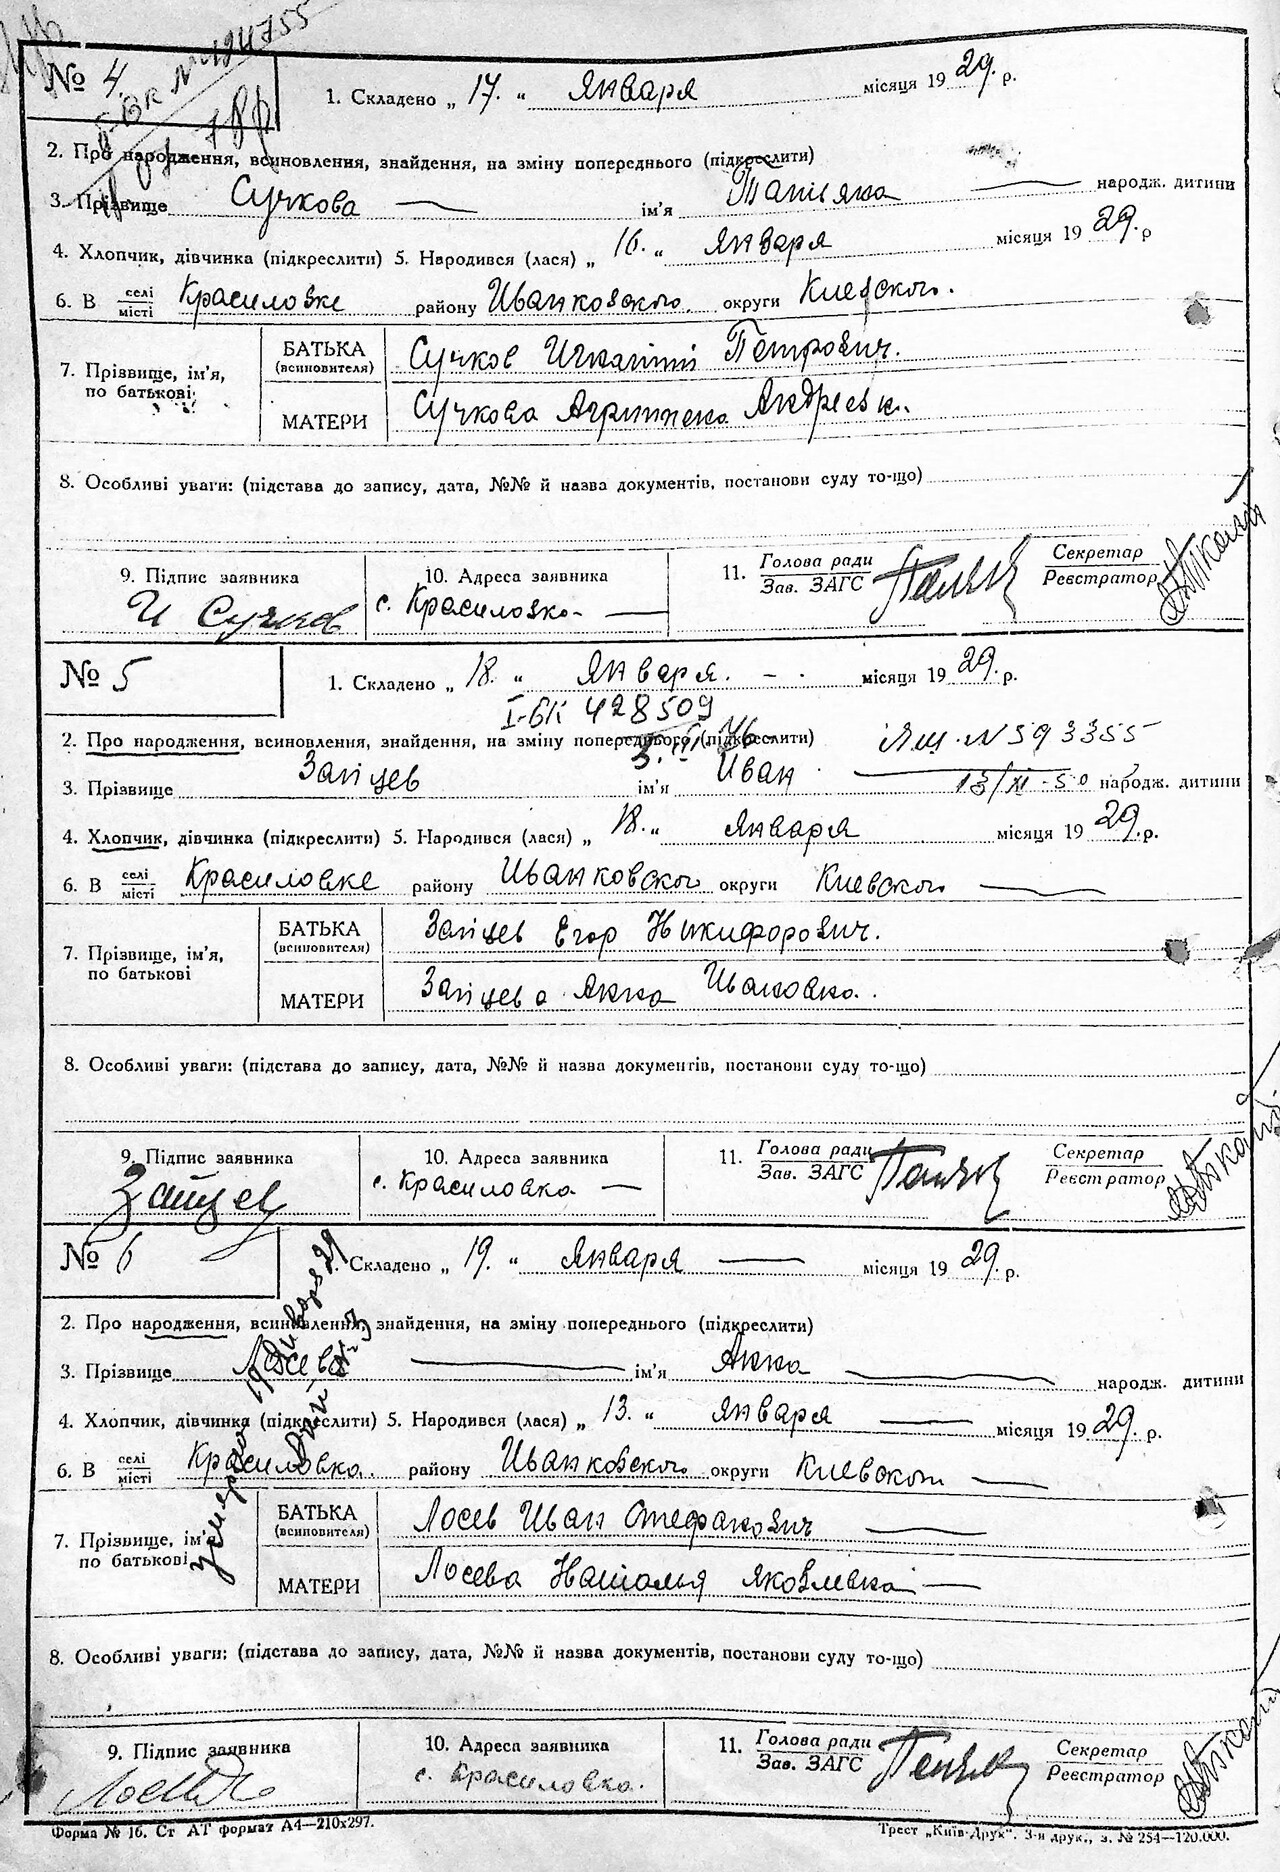 № 4.
1. Складено „ 17. “ Января місяця 1929. р.
2. Про народження, всиновлення, знайдення, на зміну попереднього (підкреслити)
3. Прізвище Сучкова ім'я Татьяна народж. дитини
4. Хлопчик, дівчинка (підкреслити) 5. Народився (лася) „ 16. “ Января місяця 1929. р
6. В селі місті Красиловке району Иванковского округи Киевского.
7. Прізвище, ім'я, по батькові
БАТЬКА (всиновителя) Сучков Петрович.
МАТЕРИ Сучкова Андреевн.
8. Особливі уваги: (підстава до запису, дата, №№ й назва документів, постанови суду то-що)
9. Підпис заявника И Сучков
10. Адреса заявника с. Красиловка
11. Голова ради Зав. ЗАГС
Секретар Реєстратор
№ 5
1. Складено „ 18. “ Января. місяця 1929. р.
I-БК 428509
2. Про народження, всиновлення, знайдення, на зміну попереднього (підкреслити) N 593355
3. Прізвище Зайцев ім'я Иван 13/XI-50 народж. дитини
4. Хлопчик, дівчинка (підкреслити) 5. Народився (лася) „ 18. “ Января місяця 1929. р.
6. В селі місті Красиловке району Иванковского округи Киевского
7. Прізвище, ім'я, по батькові
БАТЬКА (всиновителя) Зайцев Егор Никифорович.
МАТЕРИ Зайцева Анна Ивановна.
8. Особливі уваги: (підстава до запису, дата, №№ й назва документів, постанови суду то-що)
9. Підпис заявника Зайцев
10. Адреса заявника с. Красиловка
11. Голова ради Зав. ЗАГС
Секретар Реєстратор
№ 6
1. Складено „ 19. “ Января місяця 1929. р.
2. Про народження, всиновлення, знайдення, на зміну попереднього (підкреслити)
3. Прізвище Лосева ім'я Анна народж. дитини
4. Хлопчик, дівчинка (підкреслити) 5. Народився (лася) „ 13. “ Января місяця 1929. р.
6. В селі місті Красиловка. району Иванковского округи Киевского
7. Прізвище, ім'я, по батькові
БАТЬКА (всиновителя) Лосев Иван Стефанович
МАТЕРИ Лосева Наталья Яковлевна
8. Особливі уваги: (підстава до запису, дата, №№ й назва документів, постанови суду то-що)
9. Підпис заявника
10. Адреса заявника с. Красиловка.
11. Голова ради Зав. ЗАГС
Секретар Реєстратор
Форма № 16. Ст АТ формат А4—210х297.
Трест „Київ-Друк“. 3-я друк., з. № 254—120.000.